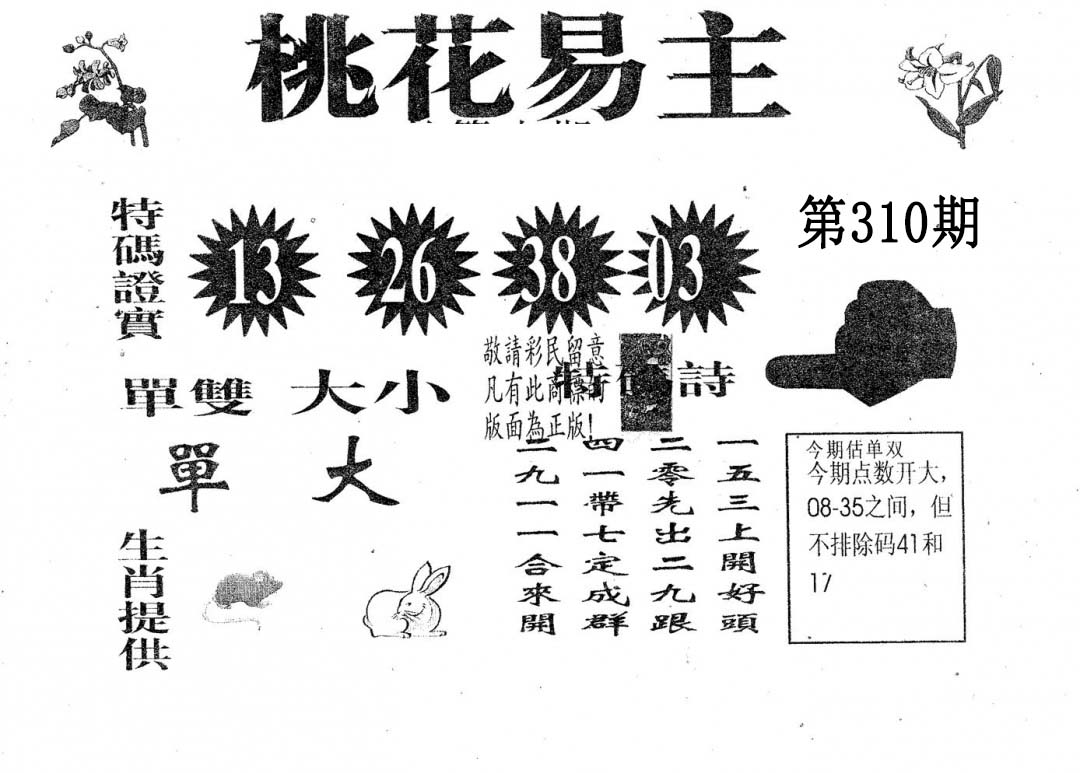 桃花易主
第310期
特碼證實
13 26 38 03
敬請彩民留意
凡有此商標的
版面為正版!
特碼詩
單雙 大小
單 大
一五三上開好頭
二零先出二九跟
四一帶七定成群
二九一一合來開
今期估单双
今期点数开大,
08-35之间，但
不排除码41和
17
生肖提供